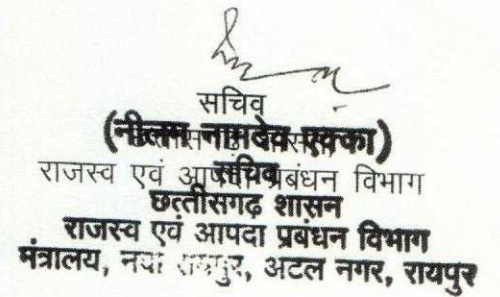 सचिव
(नीलम नामदेव एक्का)
राजस्व एवं आपदा प्रबंधन विभाग
सचिव
छत्तीसगढ़ शासन
राजस्व एवं आपदा प्रबंधन विभाग
मंत्रालय, नवा रायपुर, अटल नगर, रायपुर